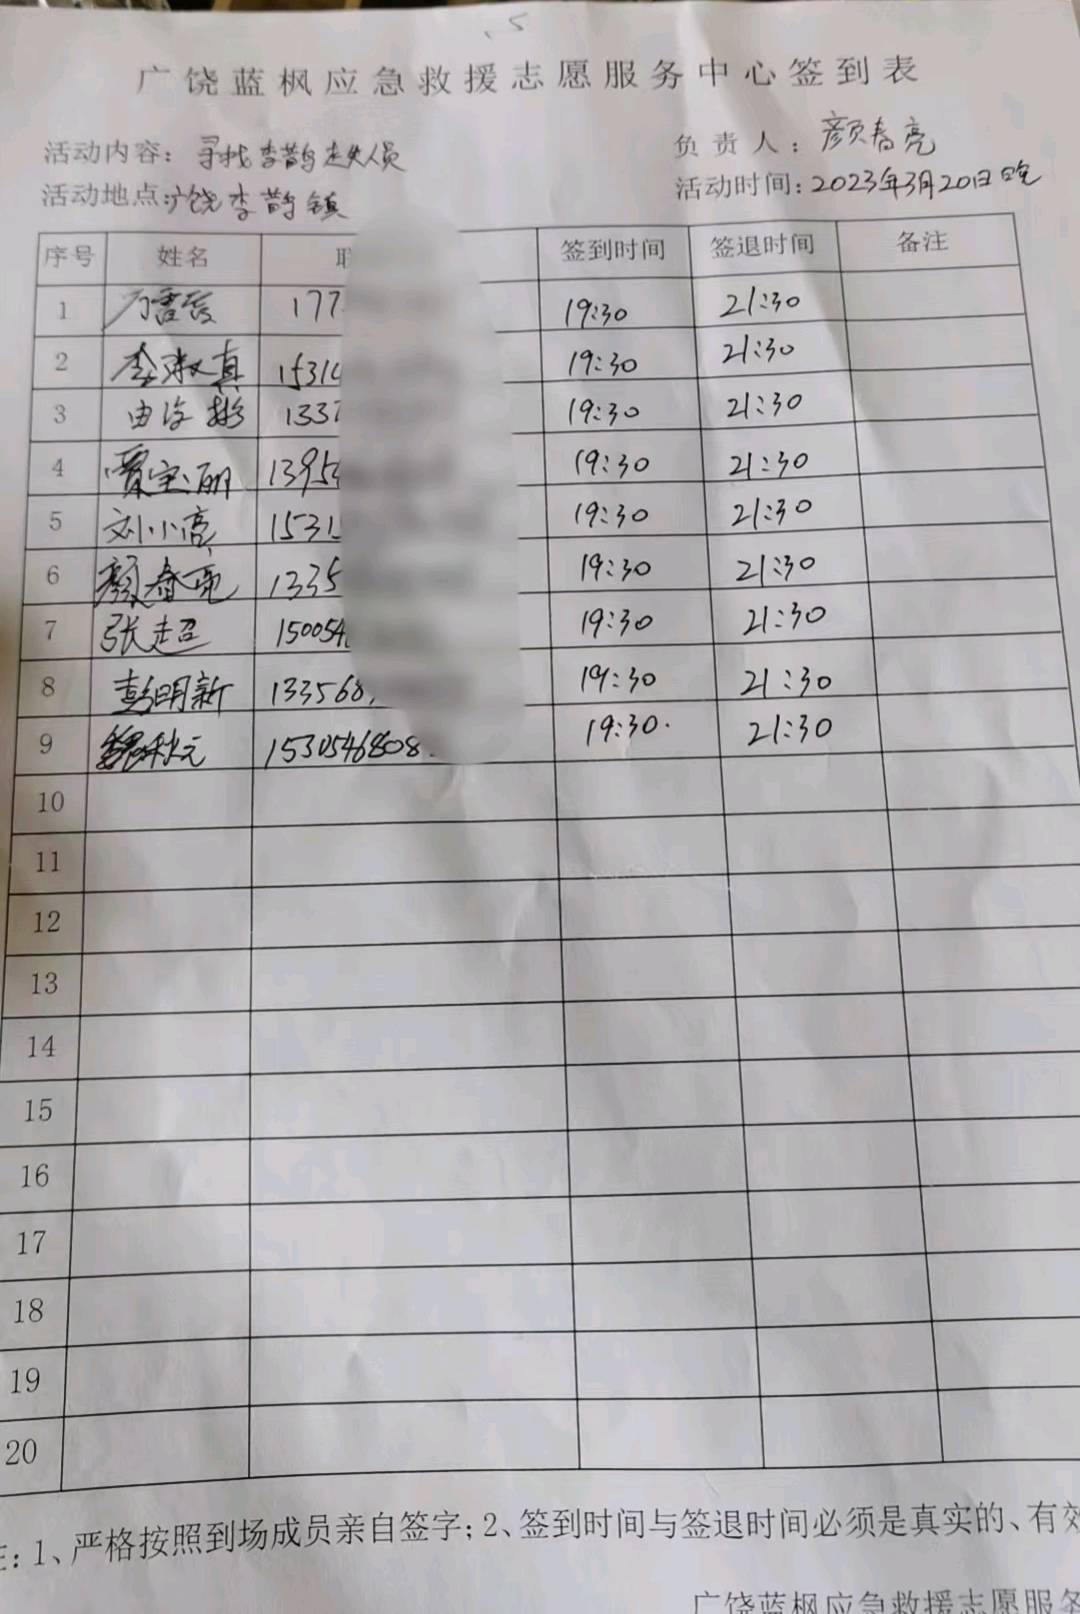 广饶蓝枫应急救援志愿服务中心签到表
活动内容：寻找李鹊走失人员 负责人：颜春亮
活动地点：广饶李鹊镇 活动时间：2023年3月20日晚
序号 姓名 联 签到时间 签退时间 备注
1 177 19:30 21:30
2 李淑真 1531 19:30 21:30
3 由 彬 1337 19:30 21:30
4 贾宝丽 1395 19:30 21:30
5 刘小亮 1531 19:30 21:30
6 颜春亮 1335 19:30 21:30
7 张超 15005 19:30 21:30
8 彭明新 133568 19:30 21:30
9 魏秋元 1530546808 19:30. 21:30
10
11
12
13
14
15
16
17
18
19
20
注：1、严格按照到场成员亲自签字；2、签到时间与签退时间必须是真实的、有效
广饶蓝枫应急救援志愿服务